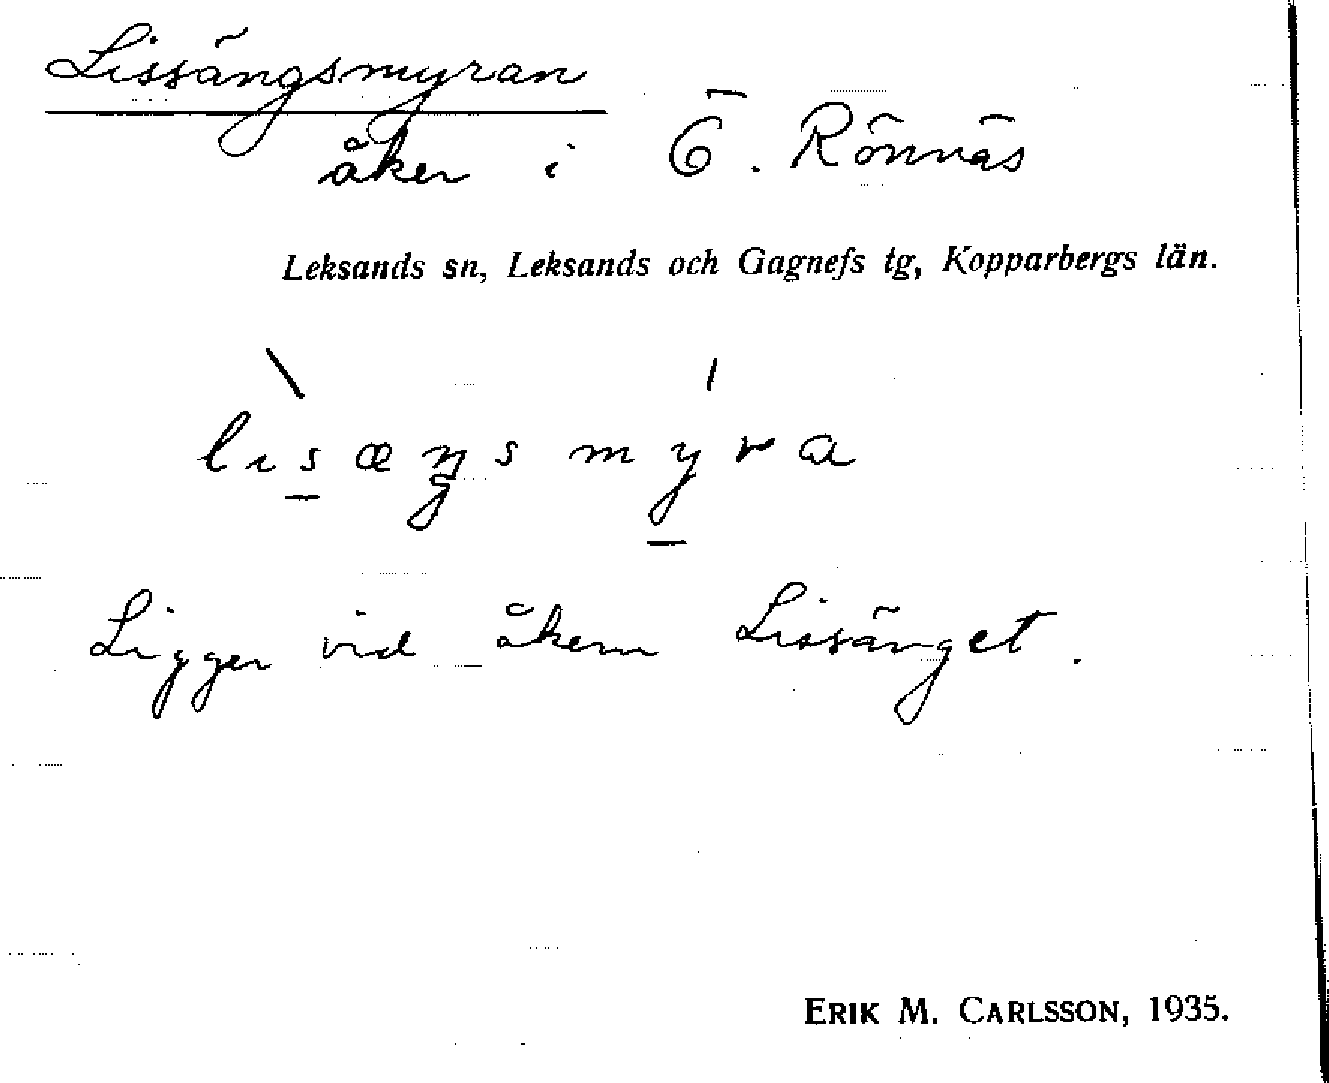 Lissängsmyran
åker i Ö. Rönnäs
Leksands sn, Leksands och Gagnefs tg, Kopparbergs län.
lisæŋsmyra
Ligger vid åkern Lissänget.
ERIK M. CARLSSON, 1935.